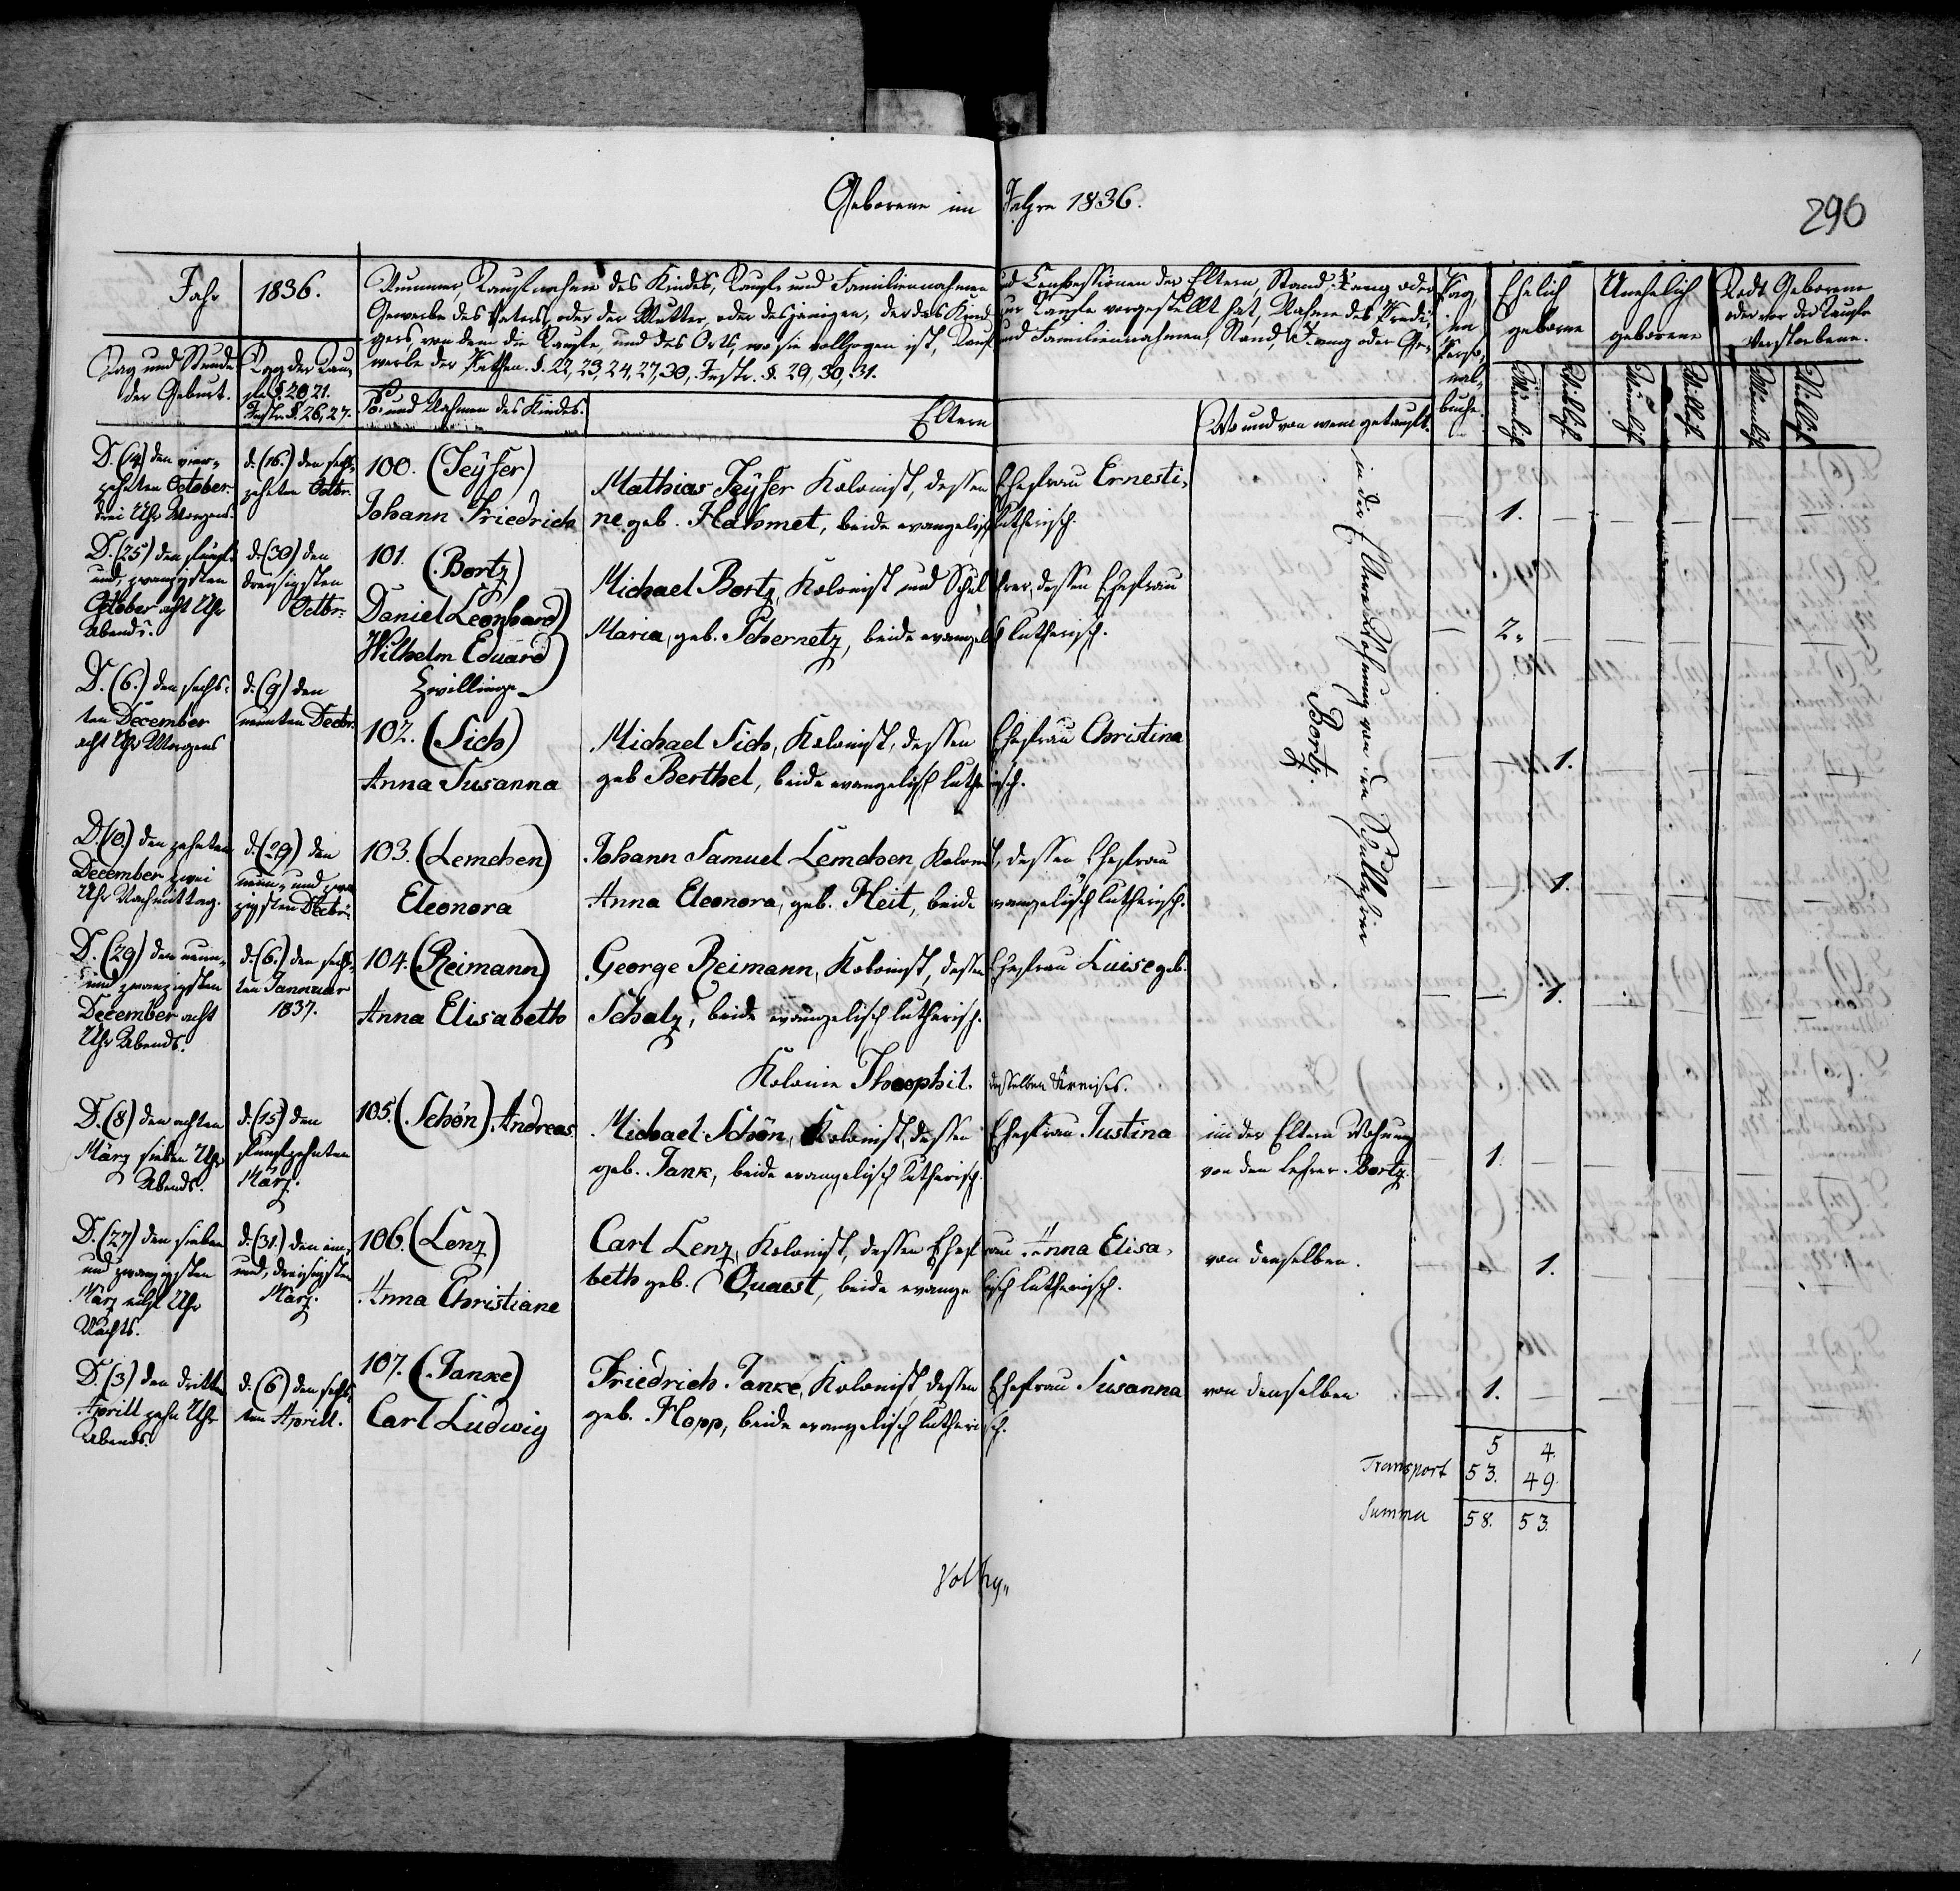 Geborene im Jahre 1836.
296
Jahr 1836.
Nummer, Taufnahme des Kindes, Taufe und Familiennahmen und Confessionen der Eltern, Stand, Rang oder
Gewerbe des Vaters, oder der Mutter, oder desjenigen, der das Kind zur Taufe vorgestellt hat, Nahme des Predi-
gers, von dem die Taufe, und des Orts, wo sie vollzogen ist, Tauf und Familiennahmen, Stand, Rang oder Ge-
werbe der Pathen. §. 22, 23, 24, 27, 30, Instr. §. 29, 30, 31.
Pag.
im
Perso-
nal-
buche.
Ehelich
geborne
Unehelich
geborene
Todt Geborene
oder vor der Taufe
Verstorbene.
Tag und Stunde
der Geburt.
Tag der Tau-
fe §. 20, 21.
Instr. §. 26, 27.
No und Nahmen des Kindes.
Eltern
Wo und von wem getauft.
Männlich
Weiblich
Männlich
Weiblich
Männlich
Weiblich
D. (14) den vier-
zehnten October
drei Uhr Morgens.
d. (16.) den sech-
zehnten Octbr.
100. (Jeyser)
Johann Friedrich
Mathias Jeyser Kolonist, dessen Ehefrau Ernesti-
ne geb. Hahmet, beide evangelisch lutherisch.
in der Eltern Wohnung von den Schullehrer
Bortz.
1.
D. (25) den fünf-
und zwanzigsten
October acht Uhr
Abends.
d. (30) den
dreisigsten
Octbr.
101. (Bortz)
Daniel Leonhard)
Wilhelm Eduard)
Zwillinge
Michael Bortz, Kolonist und Schullehrer, dessen Ehefrau
Maria, geb. Schernetz, beide evangelisch lutherisch.
2.
D. (6.) den sechs-
ten December
acht Uhr Morgens
d. (9) den
neunten Decbr.
102. (Sich)
Anna Susanna
Michael Sich, Kolonist, dessen Ehefrau Christina
geb Berthel, beide evangelisch lutherisch.
1.
D. (10.) den zehnten
December zwei
Uhr Nachmittag.
d. (29) den
neun- und zwan
zigsten Decbr.
103. (Lemchen)
Eleonora
Johann Samuel Lemchen, Kolonist, dessen Ehefrau
Anna Eleonora, geb. Heit, beide evangelisch lutherisch.
1.
D. (29) den neun-
und zwanzigsten
December acht
Uhr Abends.
d. (6.) den sechs-
ten Jannuar
1837.
104. (Reimann)
Anna Elisabeth
George Reimann, Kolonist, dessen Ehefrau Luise geb.
Schalz, beide evangelisch lutherisch.
1.
Kolonie Theophil. desselben Kreises.
D. (8) den achten
März sieben Uhr
Abends.
d. (15) den
funfzehnten
März.
105. (Schön). Andreas
Michael Schön, Kolonist, dessen Ehefrau Justina
geb. Jank, beide evangelisch lutherisch.
in der Eltern Wohnung
von den Lehrer Bortz.
1.
D. (27) den sieben
und zwanzigsten
März eilf Uhr
Nachts.
d. (31.) den ein-
und dreisigsten
März.
106. (Lenz)
Anna Christiane
Carl Lenz, Kolonist, dessen Ehefrau Anna Elisa-
beth geb. Quaest, beide evangelisch lutherisch.
von demselben.
1.
D. (3) den dritten
Aprill zehn Uhr
Abends.
d. (6) den sechs
ten Aprill.
107. (Janke)
Carl Ludwig
Friedrich Janke, Kolonist, dessen Ehefrau Susanna
geb. Hopp, beide evangelisch lutherisch.
von demselben
1.
5 4.
Transport 53. 49.
Summa 58. 53.
Volhy-